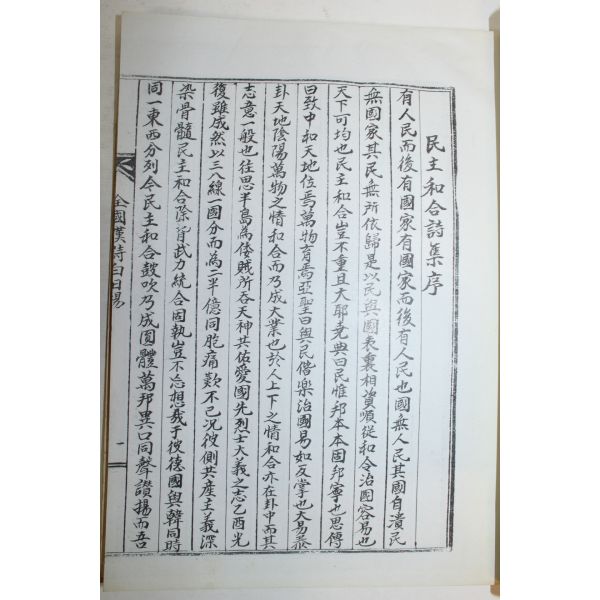 民主和合詩集序
有人民而後有國家有國家而後有人民也國無人民其國自潰民
無國家其民無所依歸是以民與國表裏相資順從和合治國容易也
天下可均也民主和合豈不重且大耶堯典曰民惟邦本本固邦寧也思傳
曰致中和天地位焉萬物育焉亞聖曰與民偕樂治國易如反掌也大易泰
卦天地陰陽萬物之情和合而乃成大業也於人上下之情和合亦在卦中而其
志意一般也往思半島為倭賊所吞天神共佑愛國先烈士大義之志乙酉光
復雖成然以三八線一國分而為二半億同胞痛歎不已況彼側共産主義深
染骨髓民主和合除脅武力統合固執豈不忘想哉于彼德國與韓同時
同一東西分列今民主和合鼓吹乃成圓體萬邦異口同聲讚揚而吾
全國漢詩白日場
一